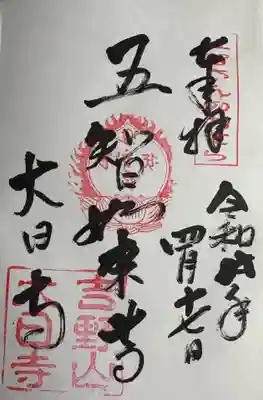 奉拝
令和六年
四月十七日
五智如来
大日寺
吉野山
大日寺